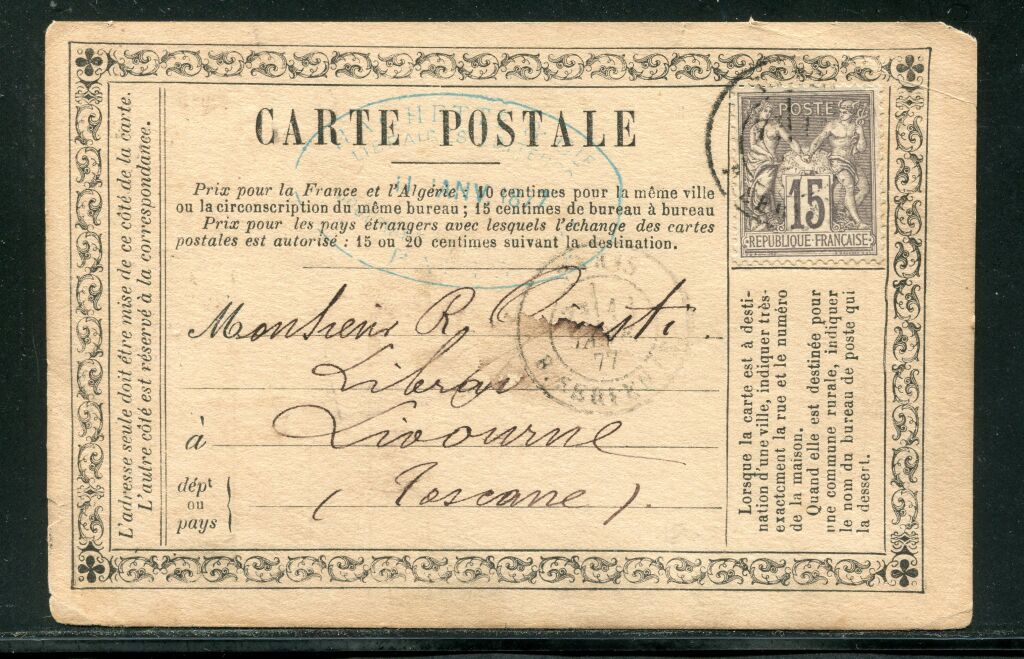 CARTE POSTALE
Prix pour la France et l'Algérie : 10 centimes pour la même ville
ou la circonscription du même bureau ; 15 centimes de bureau à bureau
Prix pour les pays étrangers avec lesquels l'échange des cartes
postales est autorisé : 15 ou 20 centimes suivant la destination.
11 JANV 1877
POSTE
15
REPUBLIQUE FRANÇAISE
PARIS
77
Monsieur R.
à Livourne
(Toscane).
dépt
ou
pays
L'adresse seule doit être mise de ce côté de la carte.
L'autre côté est réservé à la correspondance.
Lorsque la carte est à desti-
nation d'une ville, indiquer très-
exactement la rue et le numéro
de la maison.
Quand elle est destinée pour
une commune rurale, indiquer
le nom du bureau de poste qui
la dessert.